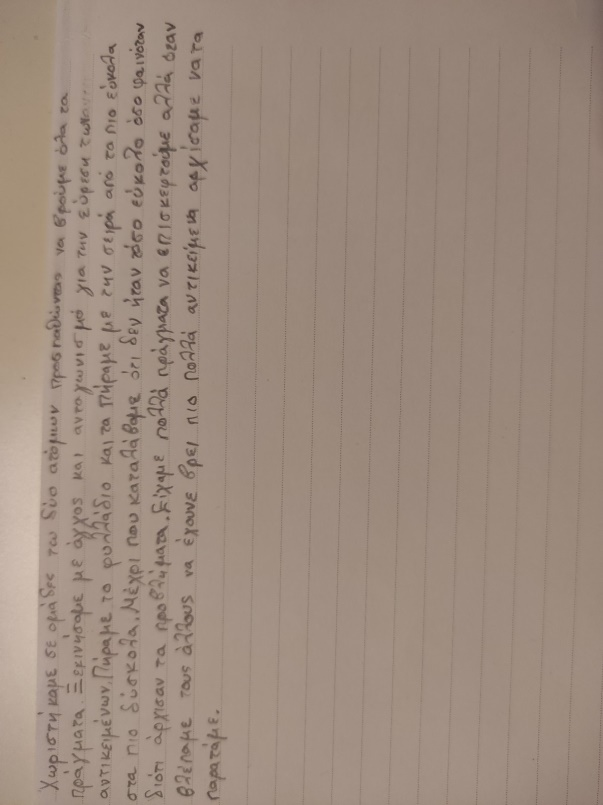 Χωριστήκαμε σε ομάδες των δύο ατόμων προσπαθώντας να βρούμε όλα τα
πράγματα. Ξεκινήσαμε με άγχος και ανταγωνισμό για την εύρεση των
αντικειμένων. Πήραμε το φυλλάδιο και τα πήραμε με την σειρά από τα πιο εύκολα
στα πιο δύσκολα. Μέχρι που καταλάβαμε ότι δεν ήταν τόσο εύκολο όσο φαινόταν
διότι άρχισαν τα προβλήματα. Είχαμε πολλά πράγματα να επισκεφτούμε αλλά όταν
βλέπαμε τους άλλους να έχουνε βρει πιο πολλά αντικείμενα αρχίσαμε να τα
παρατάμε.